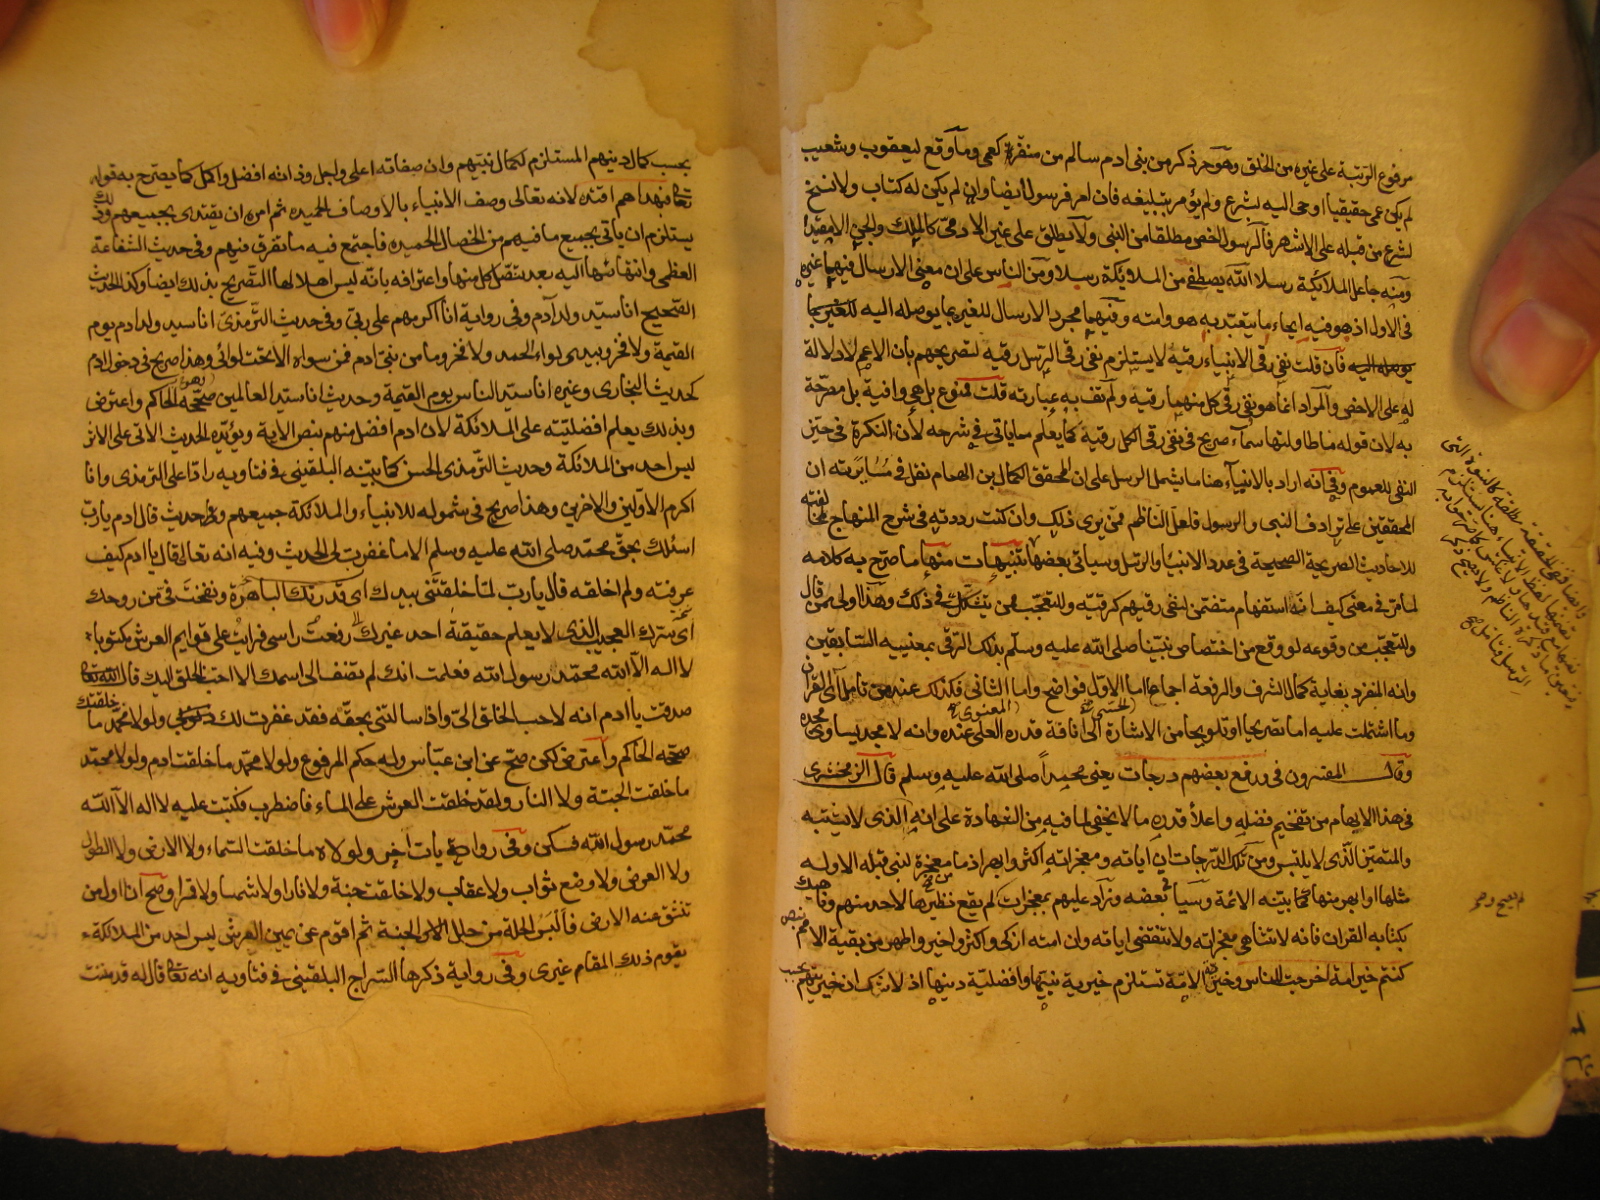 مرفوع الرتبة على غيره من الخلق وهو حر ذكر من بنى ادم سالم من منفر كعمى وما وقع ليعقوب وشعيب
لم يكن عمى حقيقيا اوحى اليه بشرع ولم يؤمر بتبليغه فان امر فرسول ايضا وان لم يكن له كتاب ولا نسخ
لشرع من قبله على الاشهر فالرسول اخص مطلقا من النبى ولا يطلق على غير الادمى كالملك والجن الا مقيدا
ومنه جاعل الملائكة رسلا الله يصطفى من الملائكة رسلا ومن الناس على ان معنى الارسال فيهما غيره
فى الاول اذ هو فيه ايحاء ما يتعبد به هو وامته وفيهما مجرد الارسال للغير بما يوصله اليه
فان قلت نفى رقى الانبياء رقيه لا يستلزم نفى رقى الرسل رقيه لتصريحهم بان الاعم لا دلالة
له على الاخص والمراد انما هو نفى رقى كل منهما رقيه ولم تف به عبارته قلت ممنوع بل هى وافية بل مصرحة
به لان قوله ما طاولتها سماء صريح فى نفى رقى الكل رقيه كما يعلم مما ياتى فى شرحه لأن النكرة فى حيز
النفى للعموم وفى انه اراد بالانبياء هنا ما يشمل الرسل على ان المحقق الكمال بن الهمام نقل فى مسايرته ان
المحققين على ترادف النبى والرسول فلعل الناظم ممن يرى ذلك وان كنت رددته فى شرح المنهاج لمخالفته
للاحاديث الصريحة الصحيحة فى عدد الانبياء والرسل وسياتى بعضها تنبيهات منها ما صرح به كلامه
لما مر فى معنى كيف انه استفهام متضمن لنفى رقيهم كرقيه وللتعجب ممن يتشكك فى ذلك وهذا اولى من قال
وللتعجب من وقوعه لو وقع من اختصاص نبينا صلى الله عليه وسلم بذلك الترقى بمعنييه السابقين
وانه المنفرد بغاية كمال الشرف والرفعة اجماعا اما الاول فواضح واما الثانى فكذلك عند من تامل آى القرآن
وما اشتملت عليه اما تصريحا او تلويحا من الاشارة الى انافة قدره العلى عنده وانه لا مجد يساوى مجده
وقال المفسرون فى ورفع بعضهم درجات يعنى محمدا صلى الله عليه وسلم قال الزمخشرى
فى هذا الابهام من تفخيم فضله واعلاء قدره ما لا يخفى لما فيه من الشهادة على انه الذى لا يشتبه
والمتميز الذى لا يلتبس ومن تلك الدرجات ان اياته ومعجزاته اكثر وابهر اذ ما من معجزة لنبى قبله الا وله
مثلها او ابهر منها كما بينه الائمة وسياتى بعضه وزاد عليهم بمعجزات لم يقع نظيرها لاحد منهم وناهيك
بكتابه القران فانه لا تتناهى معجزاته ولا تنقضى اياته وان امته ازكى واكثر واخير واطهر من بقية الامم بنص
كنتم خير امة اخرجت للناس وخيرية الامة تستلزم خيرية نبيها وافضلية دينها اذ لا شك ان خيريتهم بحسب
بحسب كمال دينهم المستلزم لكمال نبيهم وان صفاته اعلى واجل وذاته افضل واكمل كما يصرح به قوله
تعالى فبهداهم اقتده لانه تعالى وصف الانبياء بالاوصاف الحميدة ثم امره ان يقتدى بجميعهم وذلك
يستلزم ان ياتى بجميع ما فيهم من الخصال الحميدة فاجتمع فيه ما تفرق فيهم وفى حديث الشفاعة
العظمى وانتهائها اليه بعد تنصل كل منها واعترافه بانه ليس اهلا لها التصريح بذلك ايضا وكذا الحديث
الصحيح انا سيد ولد آدم وفى رواية انا اكرمهم على ربى وفى حديث الترمذى انا سيد ولد ادم يوم
القيمة ولا فخر وبيدى لواء الحمد ولا فخر وما من نبى ادم فمن سواه الا تحت لوائى وهذا صريح فى دخول ادم
كحديث البخارى وغيره انا سيد الناس يوم القيمة وحديث انا سيد العالمين صححه الحاكم واعترض
وبذلك يعلم افضليته على الملائكة لان ادم افضل منهم بنص الاية ويؤيده الحديث الاتى على الاثر
ليس احد من الملائكة وحديث الترمذى الحسن كما بينه البلقينى فى فتاويه رادا على الترمذى وانا
اكرم الاولين والاخرين وهذا صريح فى شموله للانبياء والملائكة جميعهم وحديث قال ادم يا رب
اسئلك بحق محمد صلى الله عليه وسلم الا ما غفرت لى الحديث وفيه انه تعالى قال يا ادم كيف
عرفته ولم اخلقه قال يا رب لما خلقتنى بيدك اى قدرتك الباهرة ونفخت فى من روحك
اى سرك العجيب الذى لا يعلم حقيقته احد غيرك رفعت راسى فرايت على قوايم العرش مكتوبا
لا اله الا الله محمد رسول الله فعلمت انك لم تضف الى اسمك الا احب الخلق اليك قال الله تعالى
صدقت يا ادم انه لاحب الخلق الى واذ سالتنى بحقه فقد غفرت لك ولولا محمد ما خلقتك
صححه الحاكم واعترض لكن صح عن ابن عباس وله حكم المرفوع ولولا محمد ما خلقت ادم ولولا محمد
ما خلقت الجنة ولا النار ولقد خلقت العرش على الماء فاضطرب فكتبت عليه لا اله الا الله
محمد رسول الله فسكن وفى روايات اخر ولولاه ما خلقت السماء ولا الارض ولا الطول
ولا العرض ولا وضع ثواب ولا عقاب ولا خلقت جنة ولا نارا ولا شمسا ولا قمرا وصح انا اول من
تنشق عنه الارض فالبس الحلة من حلل الجنة ثم اقوم عن يمين العرش ليس احد من الملائكة
يقوم ذلك المقام غيرى وفى رواية ذكرها السراج البلقينى فى فتاويه انه تعالى قال له قد مننت